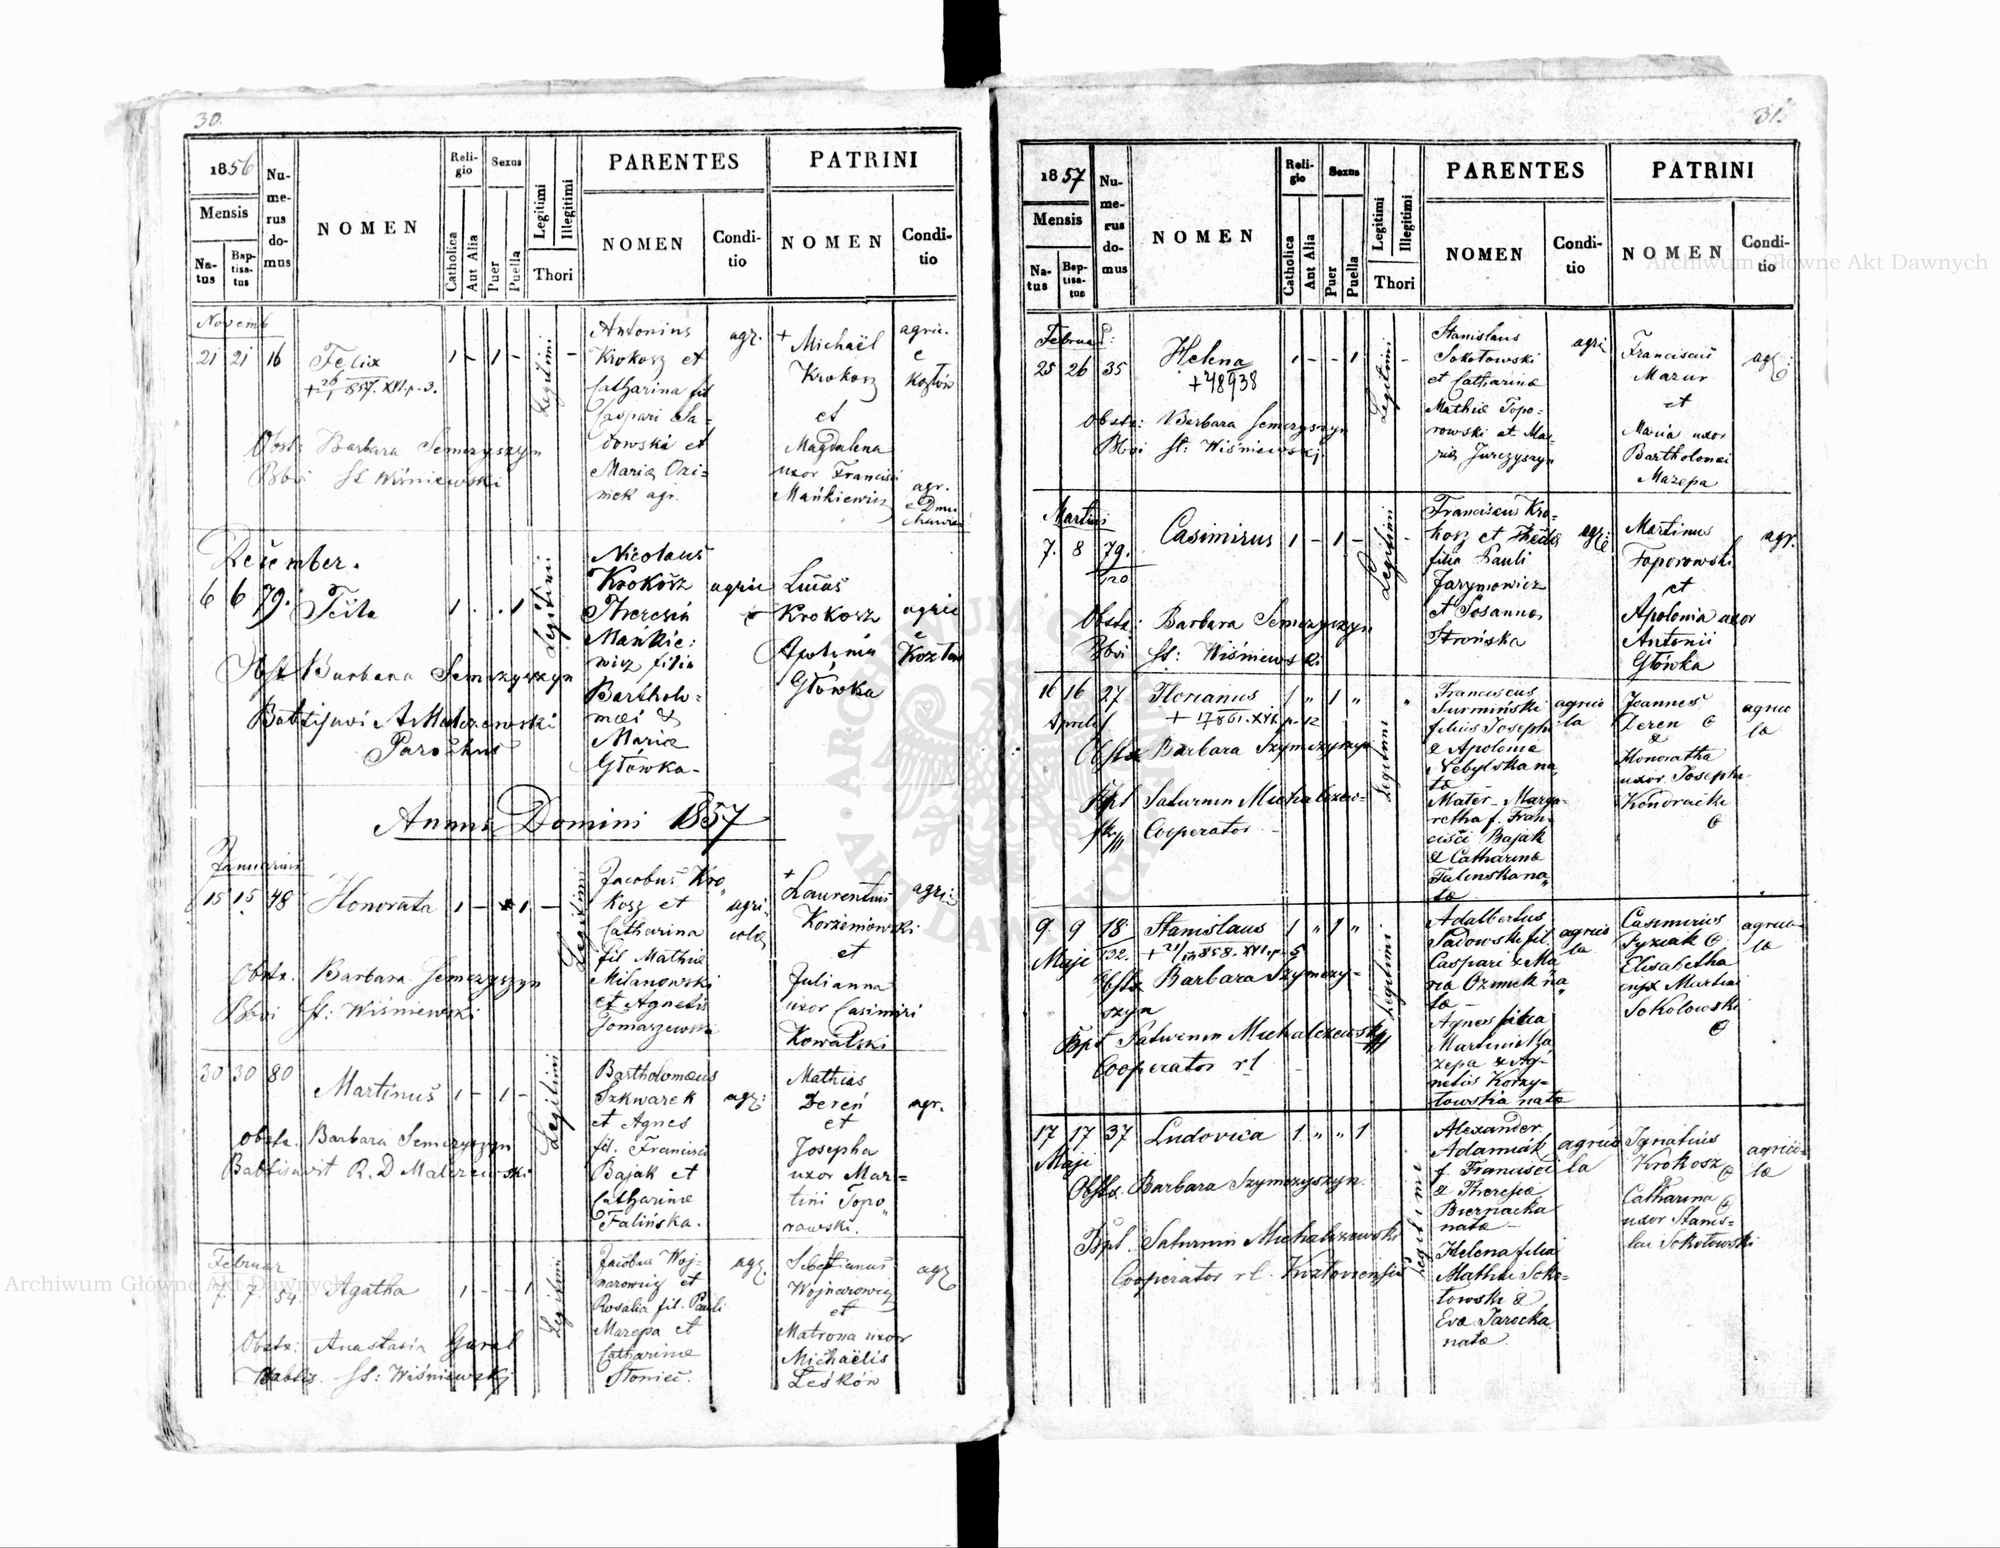 30.
1856
Mensis
Natus
Baptisatus
Numerus domus
NOMEN
Religio
Catholica
Aut Alia
Sexus
Puer
Puella
Legitimi
Illegitimi
Thori
PARENTES
NOMEN
Conditio
PATRINI
NOMEN
Conditio
Novemb
21 21 16 Felix 1 - 1 - Legitimi -
Obst: Barbara Semczyszyn
Bbvi St Wiśniewski
Antonius
Krokosz et
Catharina fil
Caspari Sa-
dowski et
Maria Ozi-
mek agr.
agr.
+ Michaël
Krokosz
et
Magdalena
uxor Francisci
Mańkiewicz
agric.
e
Kozłów
agr.
December.
6 6 79. Tecla 1 . . 1 Legitimi
Obst Barbara Semczyszyn
Babtisavi A Malczewski
Parochus
Nicolaus
Krokosz
Theresia
Mańkie:
wicz filia
Bartholo-
mæi &
Mariæ
Główka-
agric
Lucas
Krokosz
Apolonia
Główka
agric
Kozłów
Annus Domini 1857
Januarius
15 15 48 Honorata 1 - 1 - Legitimi
Obstx. Barbara Semczyszyn
Bbvi St: Wiśniewski
Jacobus Kro„
kosz et
Catharina
fil Mathiæ
Milanowski
et Agnetis
Tomaszewski
agri-
colæ
+ Laurentius
Korzeniowski
et
Julianna
uxor Casimiri
Kowalski
agri:
30 30 80 Martinus 1 - 1 - Legitimi
Obstx. Barbara Semczyszyn
Babtisavit R. D Malczewski
Bartholomæus
Szkwarek
et Agnes
fil. Francisci
Bajak et
Catharinæ
Falińska.
agr:
Mathias
Dereń
et
Josepha
uxor Mar=
tini Topo„
rowski.
agr.
Februar
7 7 54 Agatha 1 - - 1 Legitimi
Obstx: Anastasia Gural
Bablis. St: Wiśniewski
Jacobus Woj-
narowicz et
Rosalia fil. Pauli
Mazepa et
Catharinæ
Słoniec.
agr.
Sebestianus
Wojnarowicz
et
Matrona uxor
Michaëlis
Leśków
agr
31.
1857
Mensis
Natus
Baptisatus
Numerus domus
NOMEN
Religio
Catholica
Ant Alia
Sexus
Puer
Puella
Legitimi
Illegitimi
Thori
PARENTES
NOMEN
Conditio
PATRINI
NOMEN
Conditio
Februar:
25 26 35 Helena 1 - - 1 Legitimi -
Obstx: Barbara Semczyszyn
Bbvi St: Wiśniewski
Stanislaus
Sokołowski
et Catharina
Mathiæ Topo-
rowski et Ma-
riæ Jurczyszyn
agri
Franciscus
Mazur
et
Maria uxor
Bartholomei
Mazepa
Martius
7. 8 79. Casimirus 1 - 1 - Legitimi -
120
Obstx: Barbara Semczyszyn
Bbvi St: Wiśniewski
Franciscus Kro-
kosz et Thecla
filia Pauli
Jarymowicz
et Susanna
Strońska
Martinus
Toporowski
et
Apolonia uxor
Antonii
Główka
agr.
16 16 27 Florianus 1 „ 1 „ Legitimi „
Aprilis
Obstx Barbara Szymczyszyn
Bpt Saturnin Michalczew-
ski Cooperator -
Franciscus
Surmiński
filius Josephi
& Apolonia
Nebylska na„
ta -
Mater - Marga-
retha f. Fran-
cisci Bajak
& Catharina
Falinska na„
ta
agrico
la
Joannes
Deren
&
Honoratha
uxor Josephi
Kondracki
agrico
la
9 9 18 Stanislaus 1 „ 1 „ Legitimi
Maji 132.
Obstx Barbara Szymczy-
szyn
Bpt Saturnin Michalczewski
Cooperator rl -
Adalbertus
Sadowski fil.
Caspari & Ma„
ria Ozimek na„
ta -
Agnes filia
Martini Ma
zepa & Ag-
netis Korzy-
towska nata
agrico
la
Casimirus
Pyziak
Elisabetha
conjx Martini
Sokolowski
agrico-
la
17 17 37 Ludovica 1 „ „ 1 Legitimi
Maji
Obstx. Barbara Szymczyszyn.
Bpt. Saturnin Michalczewski
Cooperator rl. Kozloviensis
Alexander
Adamiak
f. Francisci
& Theresia
Biernacka
nata -
Helena filia
Mathiæ Soko-
lowski &
Eva Jarocka
nata
agrico
la
Ignatius
Krokosz
Catharina
uxor Stanis-
lai Sokołowski
agrico-
la
Archiwum Główne Akt Dawnych
Archiwum Główne Akt Dawnych
ARCHIWUM GŁÓWNE AKT DAWNYCH